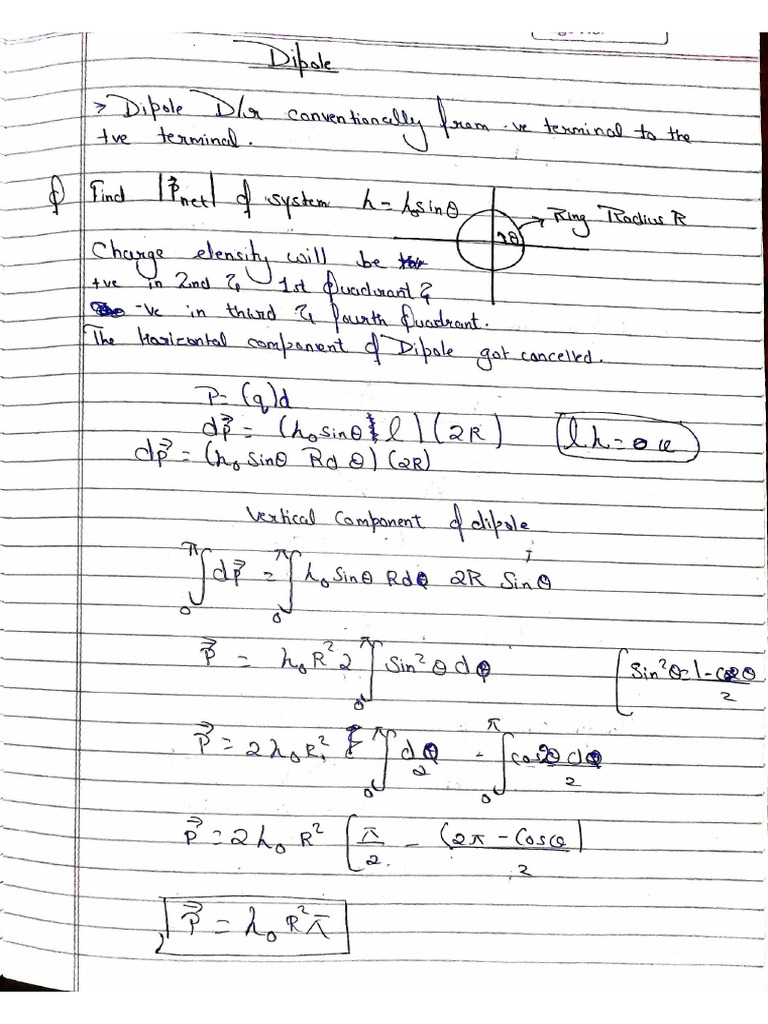 Dipole
> Dipole D/r conventionally from -ve terminal to the
+ve terminal.
Q Find |P⃗net| of system λ = λ₀sinθ
Ring Radius R
θ
Charge density will be
+ve in 2nd & 1st Quadrant &
-ve in third & fourth Quadrant.
The Horizontal component of Dipole got cancelled.
P = (q)d
dP⃗ = (λ₀ sinθ l) (2R)
lλ = Q
dP⃗ = (λ₀ sinθ Rdθ) (2R)
Vertical Component of dipole
∫₀^π dP⃗ = ∫₀^π λ₀ sinθ Rdθ 2R Sinθ
P⃗ = λ₀R² 2 ∫₀^π sin²θ dθ
[Sin²θ = 1 - cos2θ / 2
P⃗ = 2λ₀R² ∫₀^π dθ/2 - ∫₀^π cos2θ dθ/2
P⃗ = 2λ₀ R² [π/2 - (2π - Cos0)/2
P⃗ = λ₀ R² π